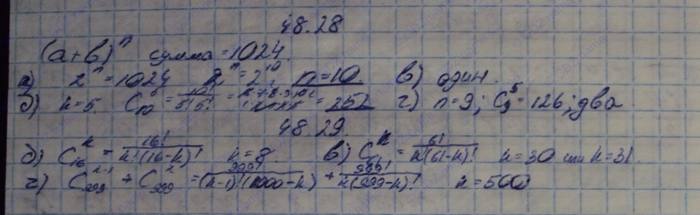 48.28
(a+b)^n сумма = 1024.
а) 2^n = 1024 2^n = 2^10 n = 10. в) один.
б) k = 5. C_n^5 = 10!/5!5! = = 252 г) n = 9; C_9^5 = 126; два
48.29.
б) C_16^k = 16!/k!(16-k)! k = 8. в) C_61^k = 61!/k!(61-k)! k = 30 или k = 31.
г) C_999^k-1 + C_999^k = 999!/(k-1)!(1000-k)! + 999!/k!(999-k)! k = 500